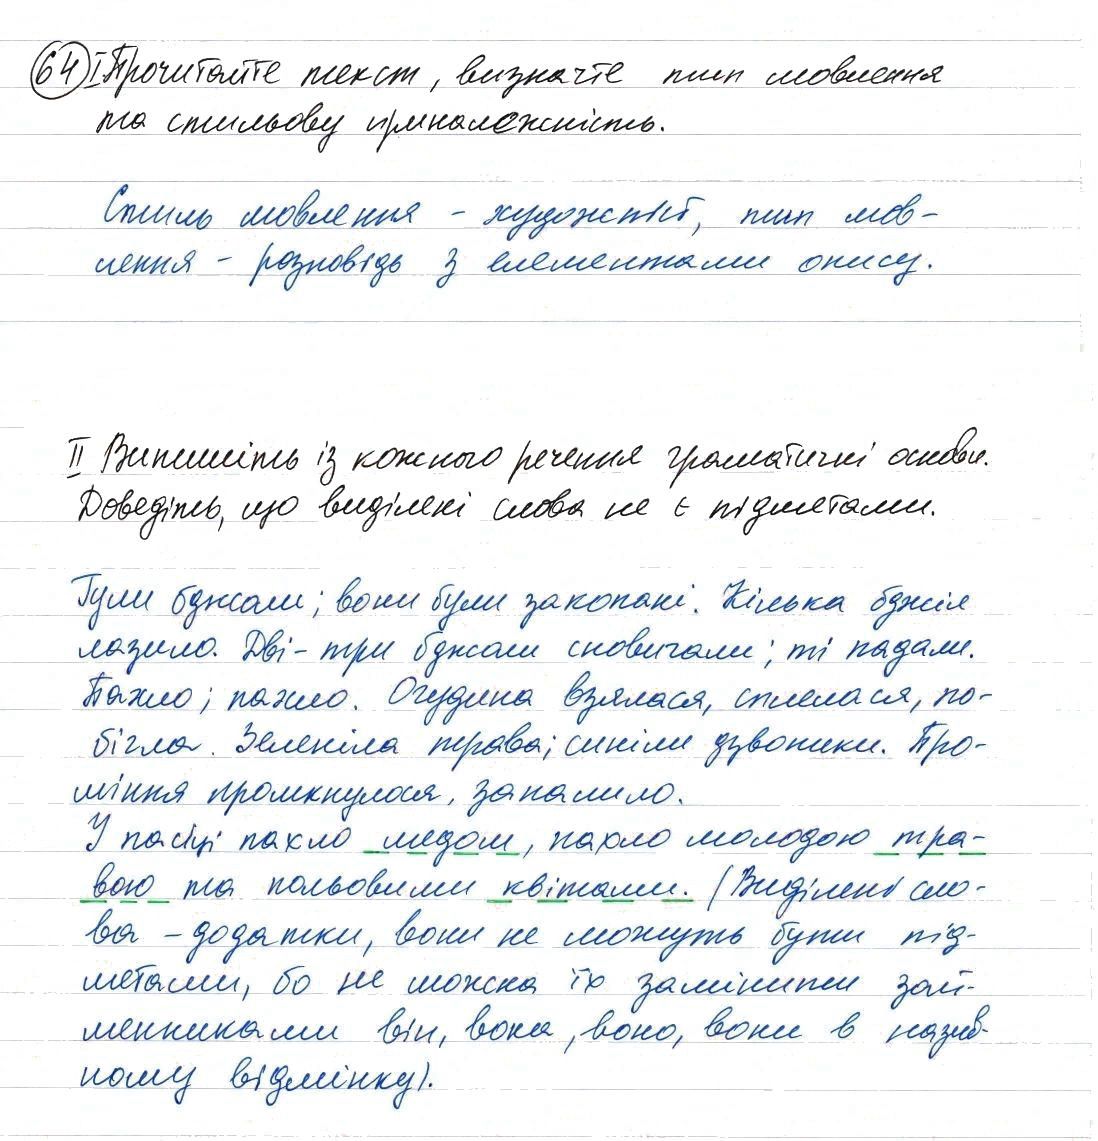 64 I Прочитайте текст, визначте тип мовлення
та стильову приналежність.
Стиль мовлення - художній, тип мов-
лення - розповідь з елементами опису.
II Випишіть із кожного речення граматичні основи.
Доведіть, що виділені слова не є підметами.
Гули бджоли; вони були закопані. Кілька бджіл
лазило. Дві-три бджоли сновигали; ті падали.
Пахло; пахло. Огудина взялася, сплелася, по-
бігла. Зеленіла трава; синіли дзвоники. Про-
міння промкнулося, запалило.
У пасіці пахло медом, пахло молодою тра-
вою та польовими квітами. (Виділені сло-
ва - додатки, вони не можуть бути під-
метами, бо не можна їх замінити зай-
менниками він, вона, воно, вони в назив-
ному відмінку).